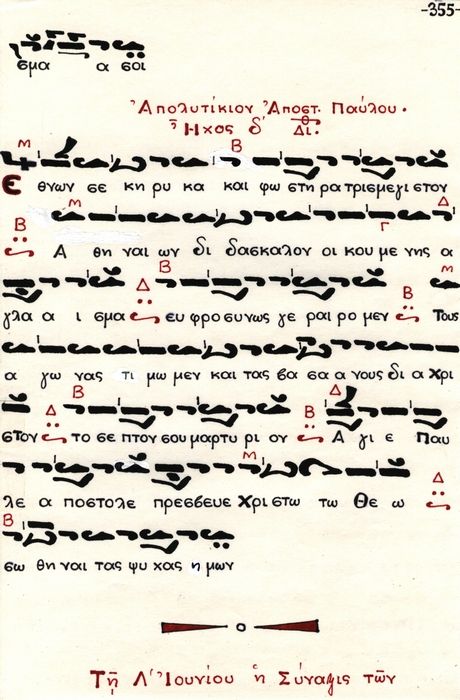 -355-
σμα α σοι
Ἀπολυτίκιον Ἀποστ. Παύλου.
Ἦχος δ´ Δι.
Μ Β
Ε θνων σε κη ρυ κα και φω στη ρα τρισμεγι στον
Μ Γ Δ
Β Α θη ναι ων δι δασκαλον οι κου με νης α
Δ Β Β Μ
γλα α ι σμα ευ φρο συνως γε ραι ρο μεν Τους
α γω νας τι μω μεν και τας βα σα α νους δι α Χρι
Δ Β Β Δ
στον το σε πτον σου μαρτυ ρι ον Α γι ε Παυ
Μ Δ
λε α ποστολε πρεσβευε Χρι στω τω Θε ω
Β
σω θη ναι τας ψυ χας η μων
Τῇ Λ´ Ἰουνίου ἡ Σύναψις τῶν